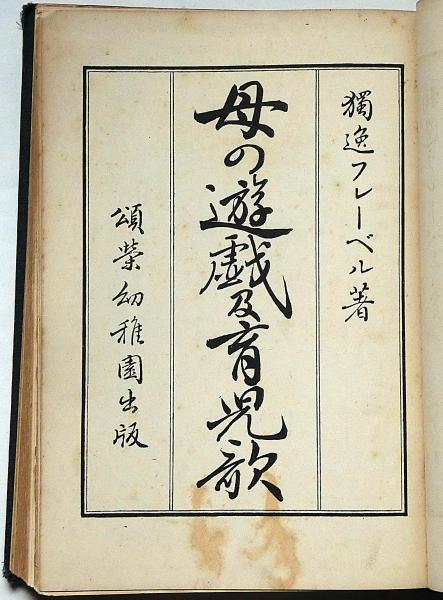 獨逸フレーベル著
母の遊戯及育児歌
頌栄幼稚園出版